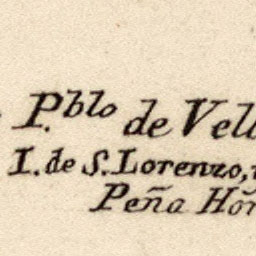 P.blo de Vell
I. de S. Lorenzo,
Peña Hor